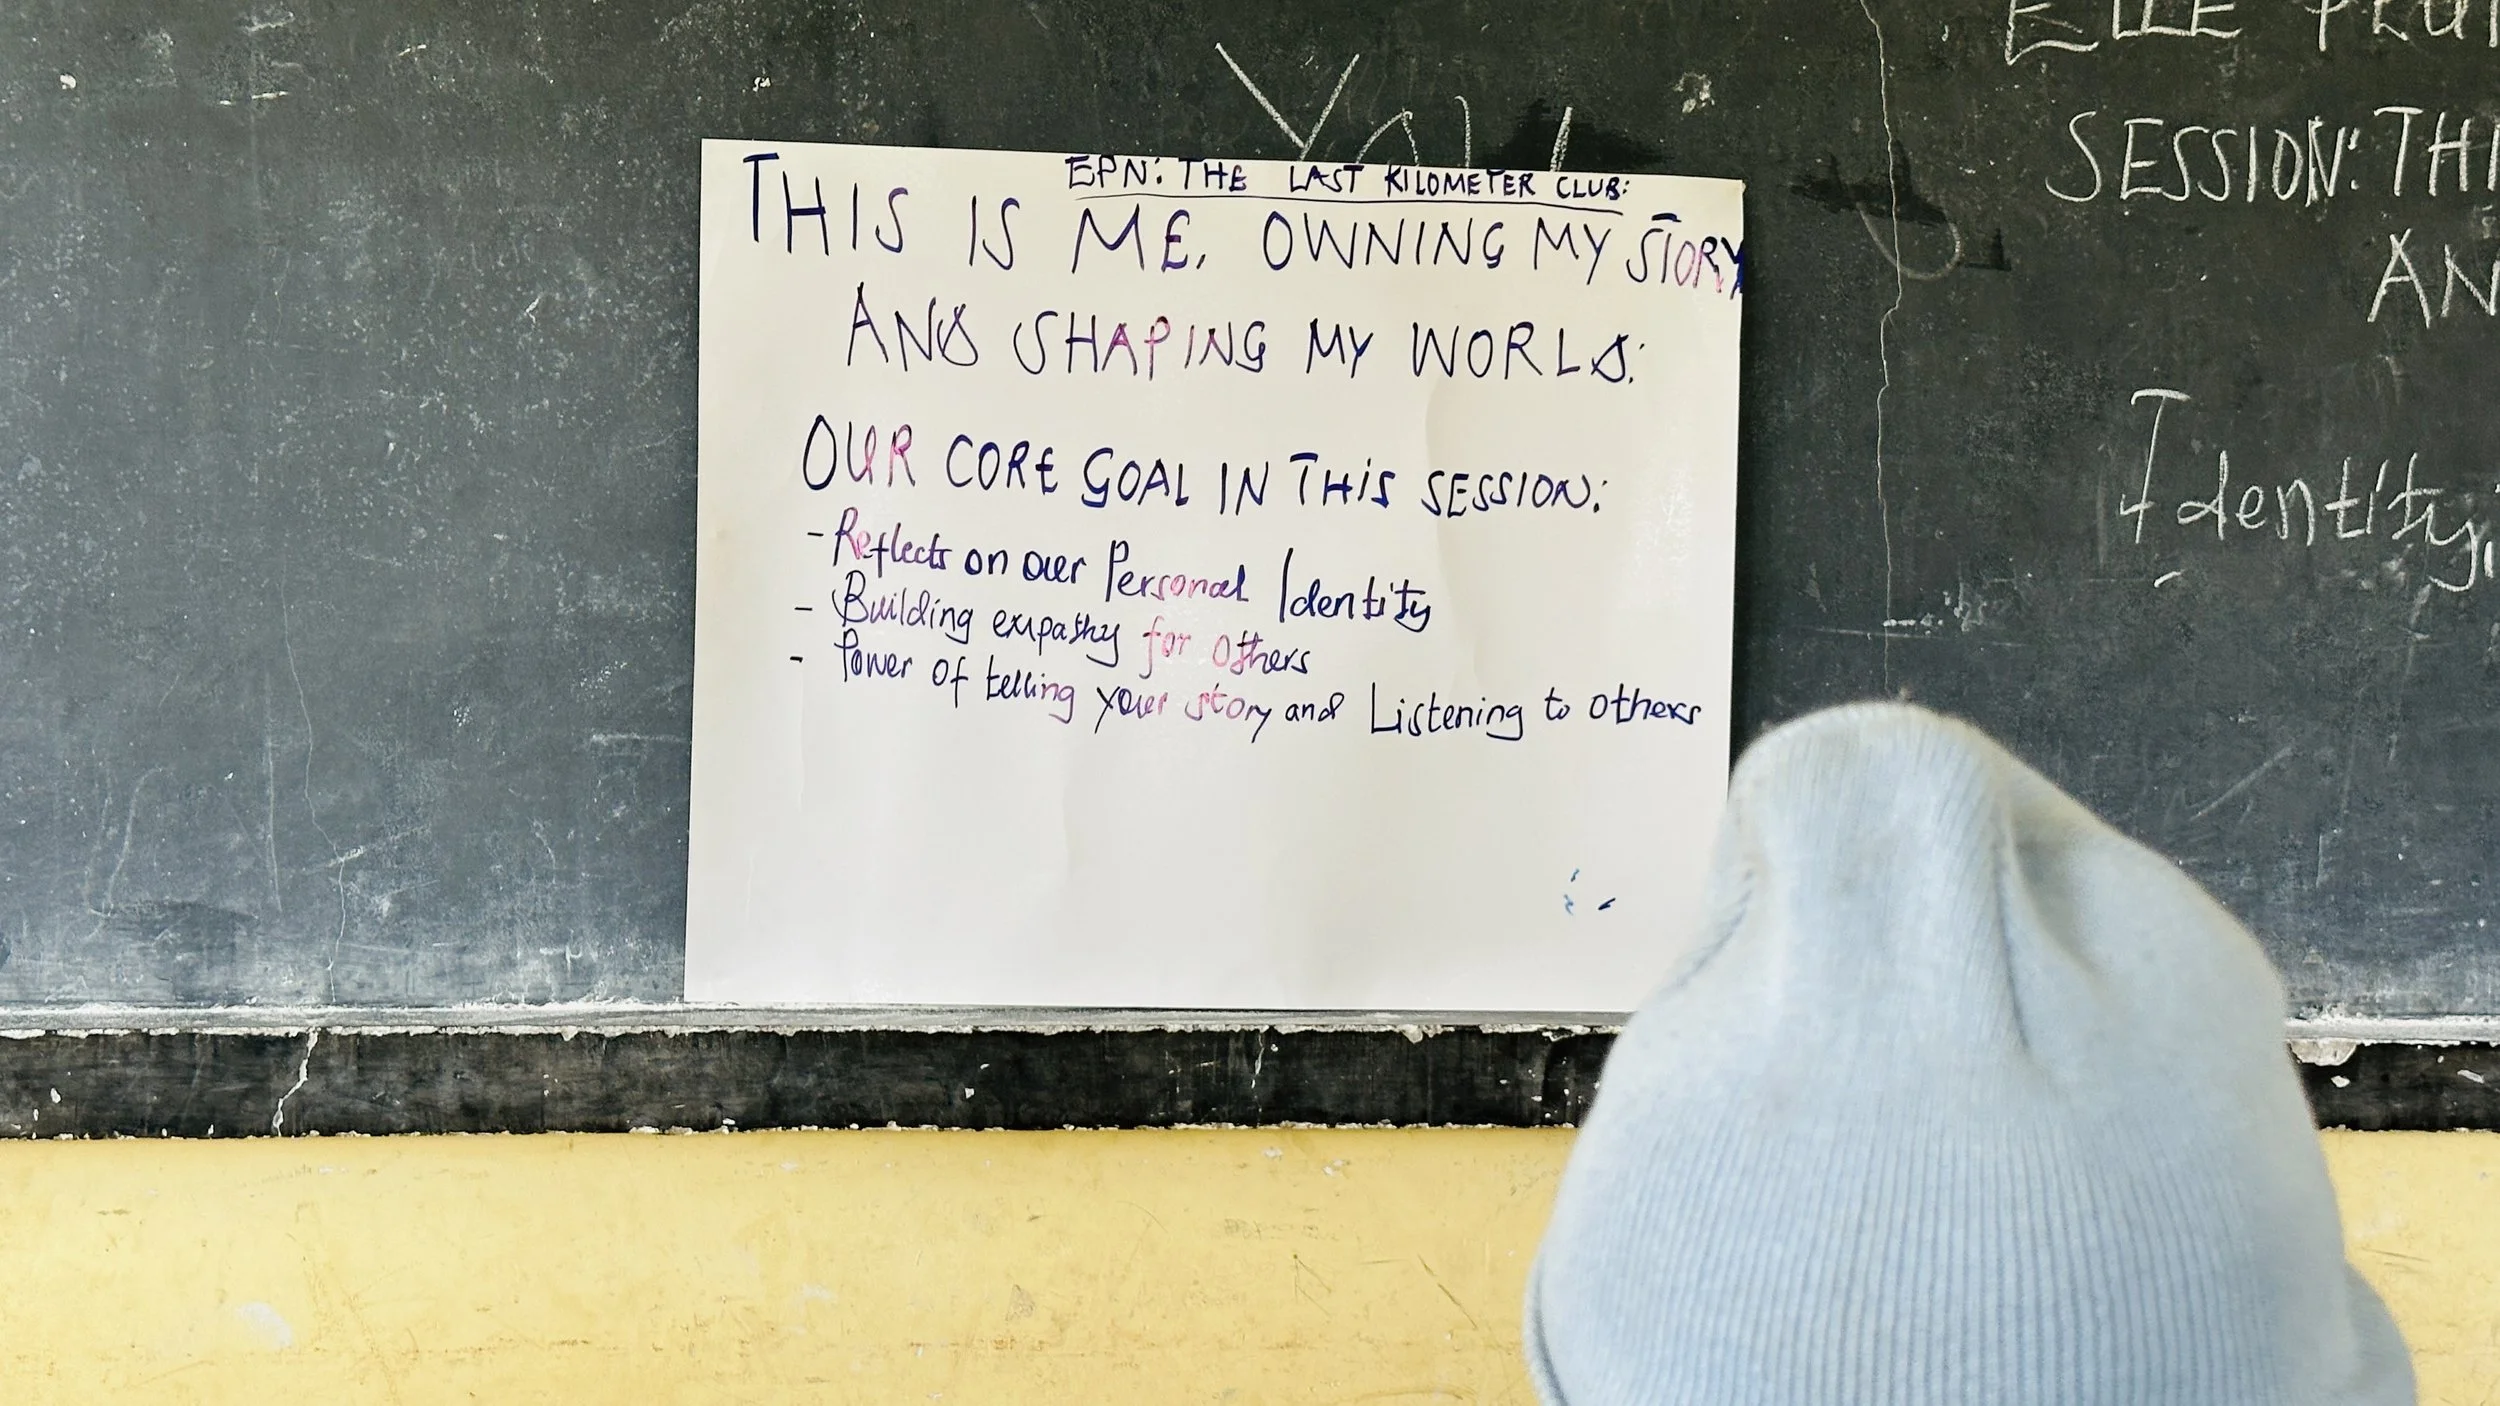 EPN: THE LAST KILOMETER CLUB:
THIS IS ME. OWNING MY STORY
AND SHAPING MY WORLD:
OUR CORE GOAL IN THIS SESSION:
- Reflects on our Personal Identity
- Building empathy for others
- Power of telling your story and Listening to others
SESSION: THI
AN
Identity